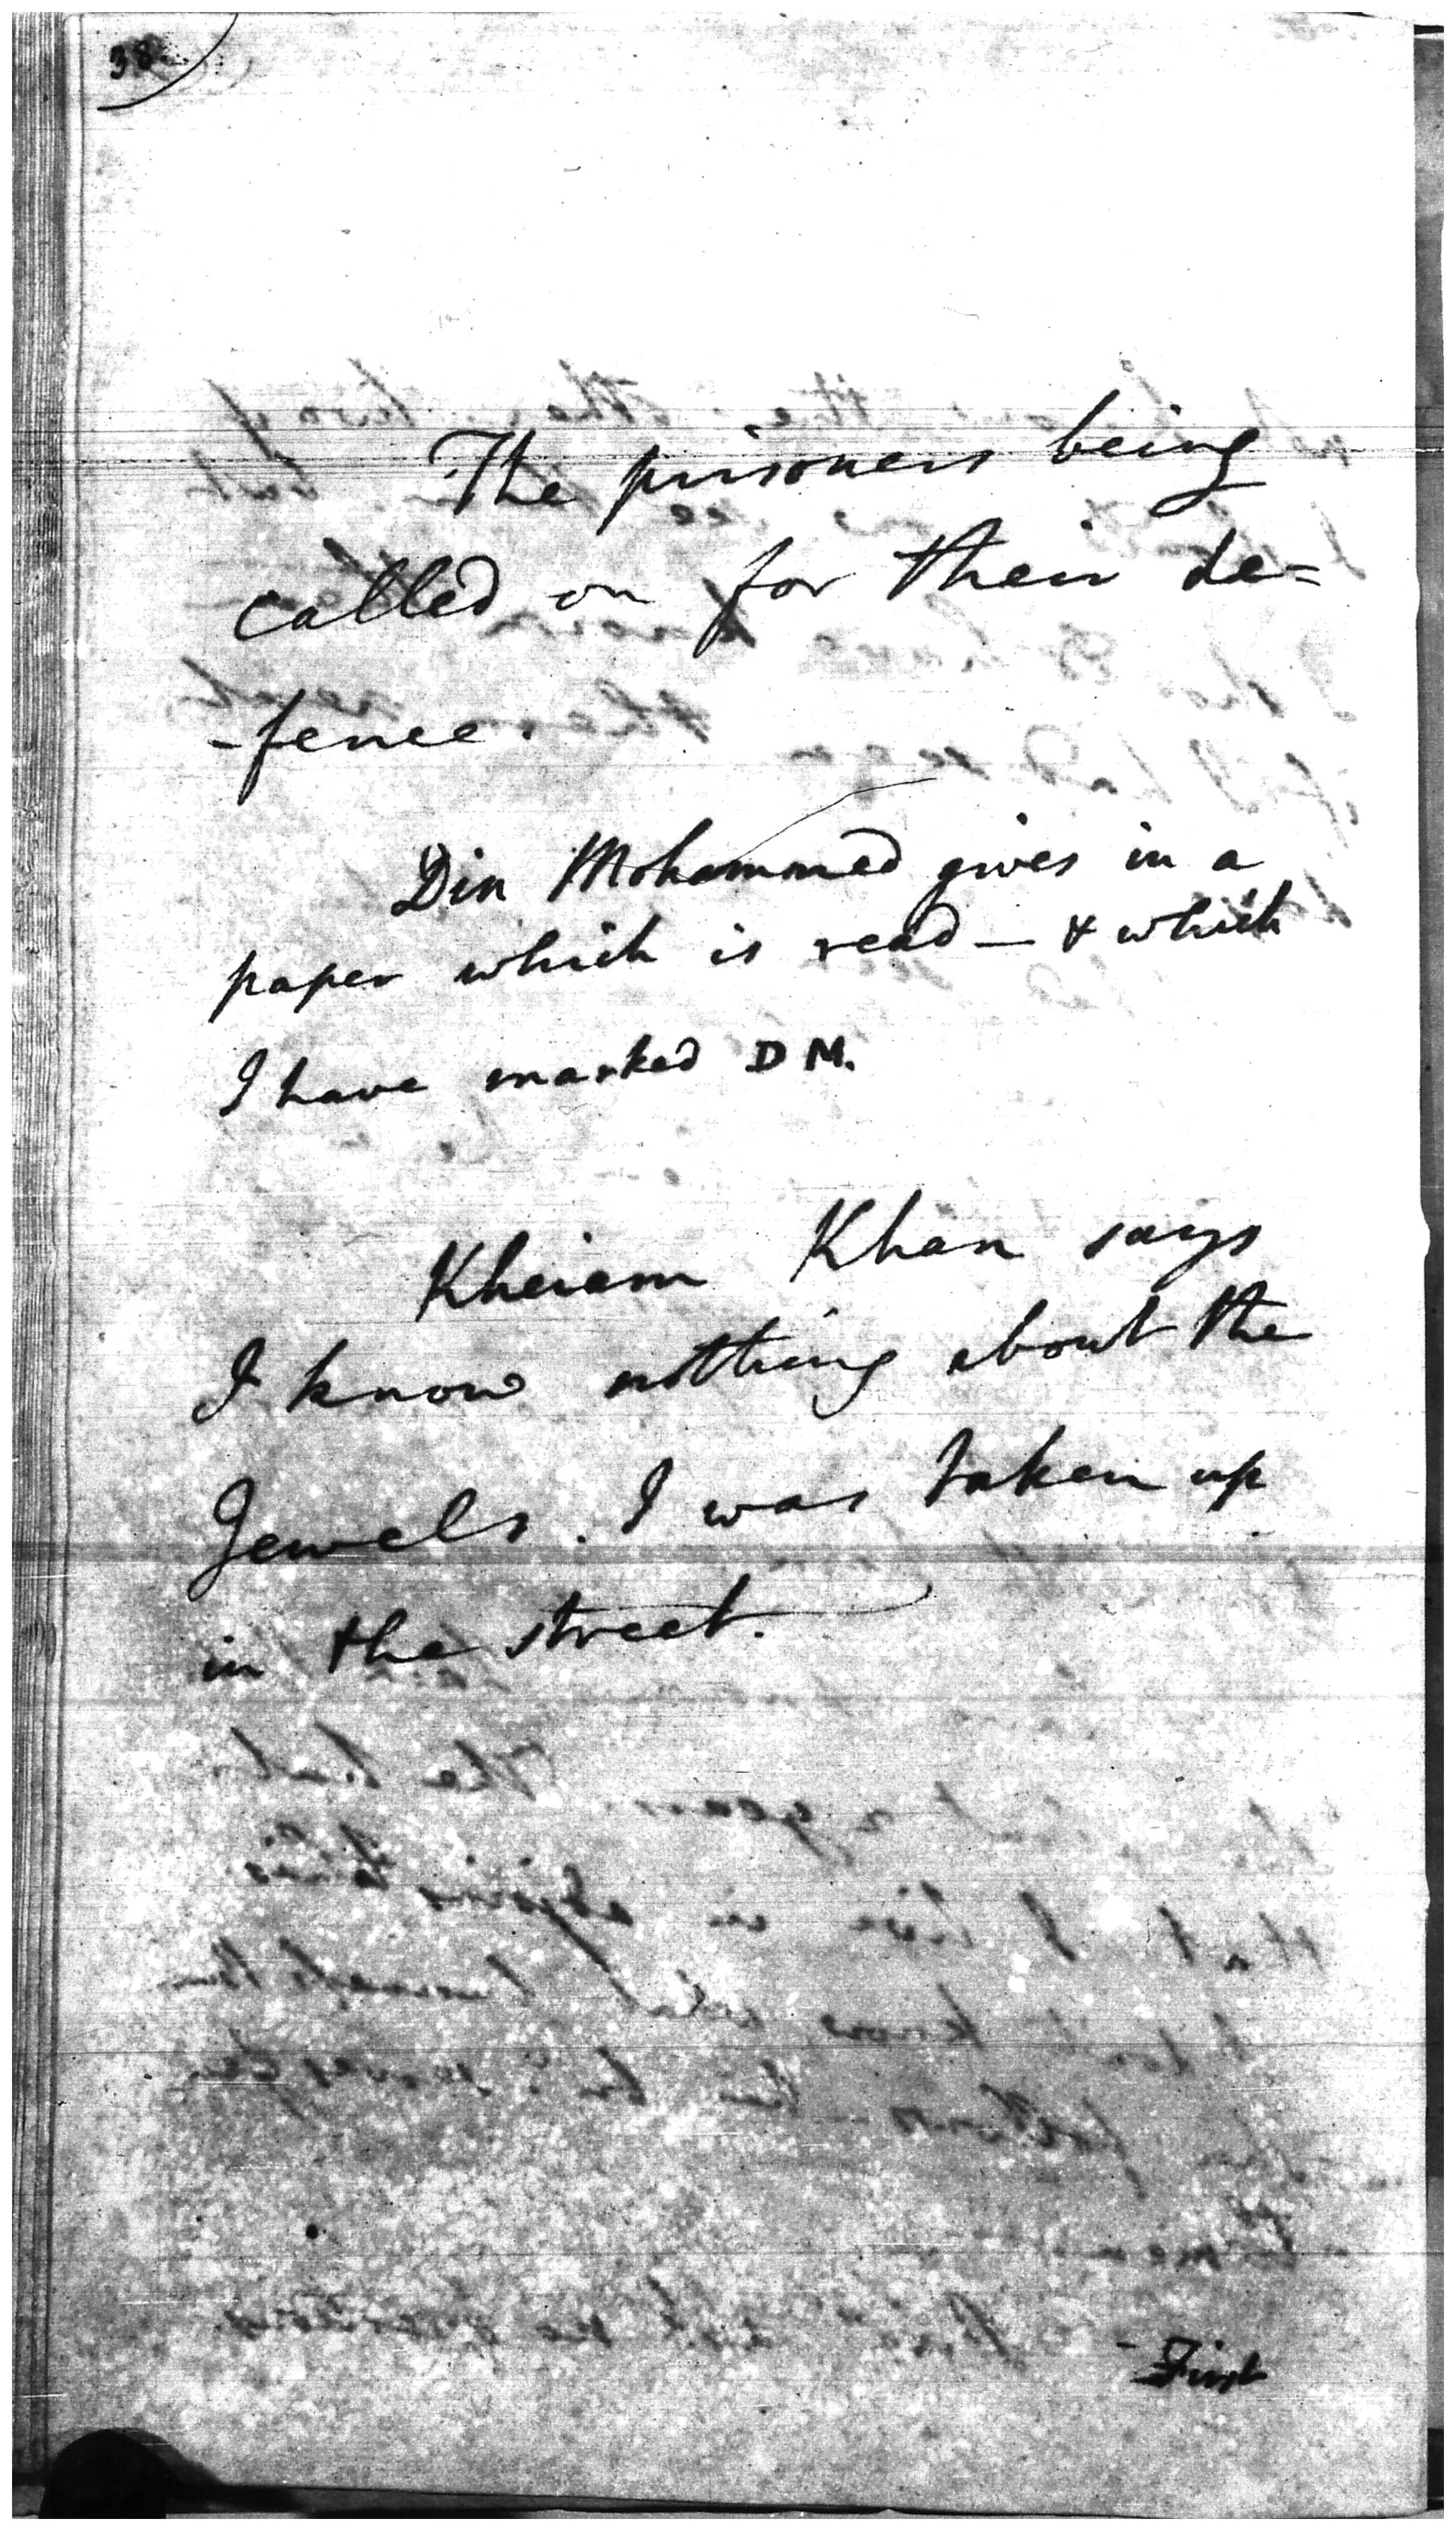 38
The prisoners being
called on for their de=
-fence.
Din Mohammed gives in a
paper which is read — & which
I have marked D M.
Kheiam Khan says
I know nothing about the
Jewels. I was taken up
in the street.
First